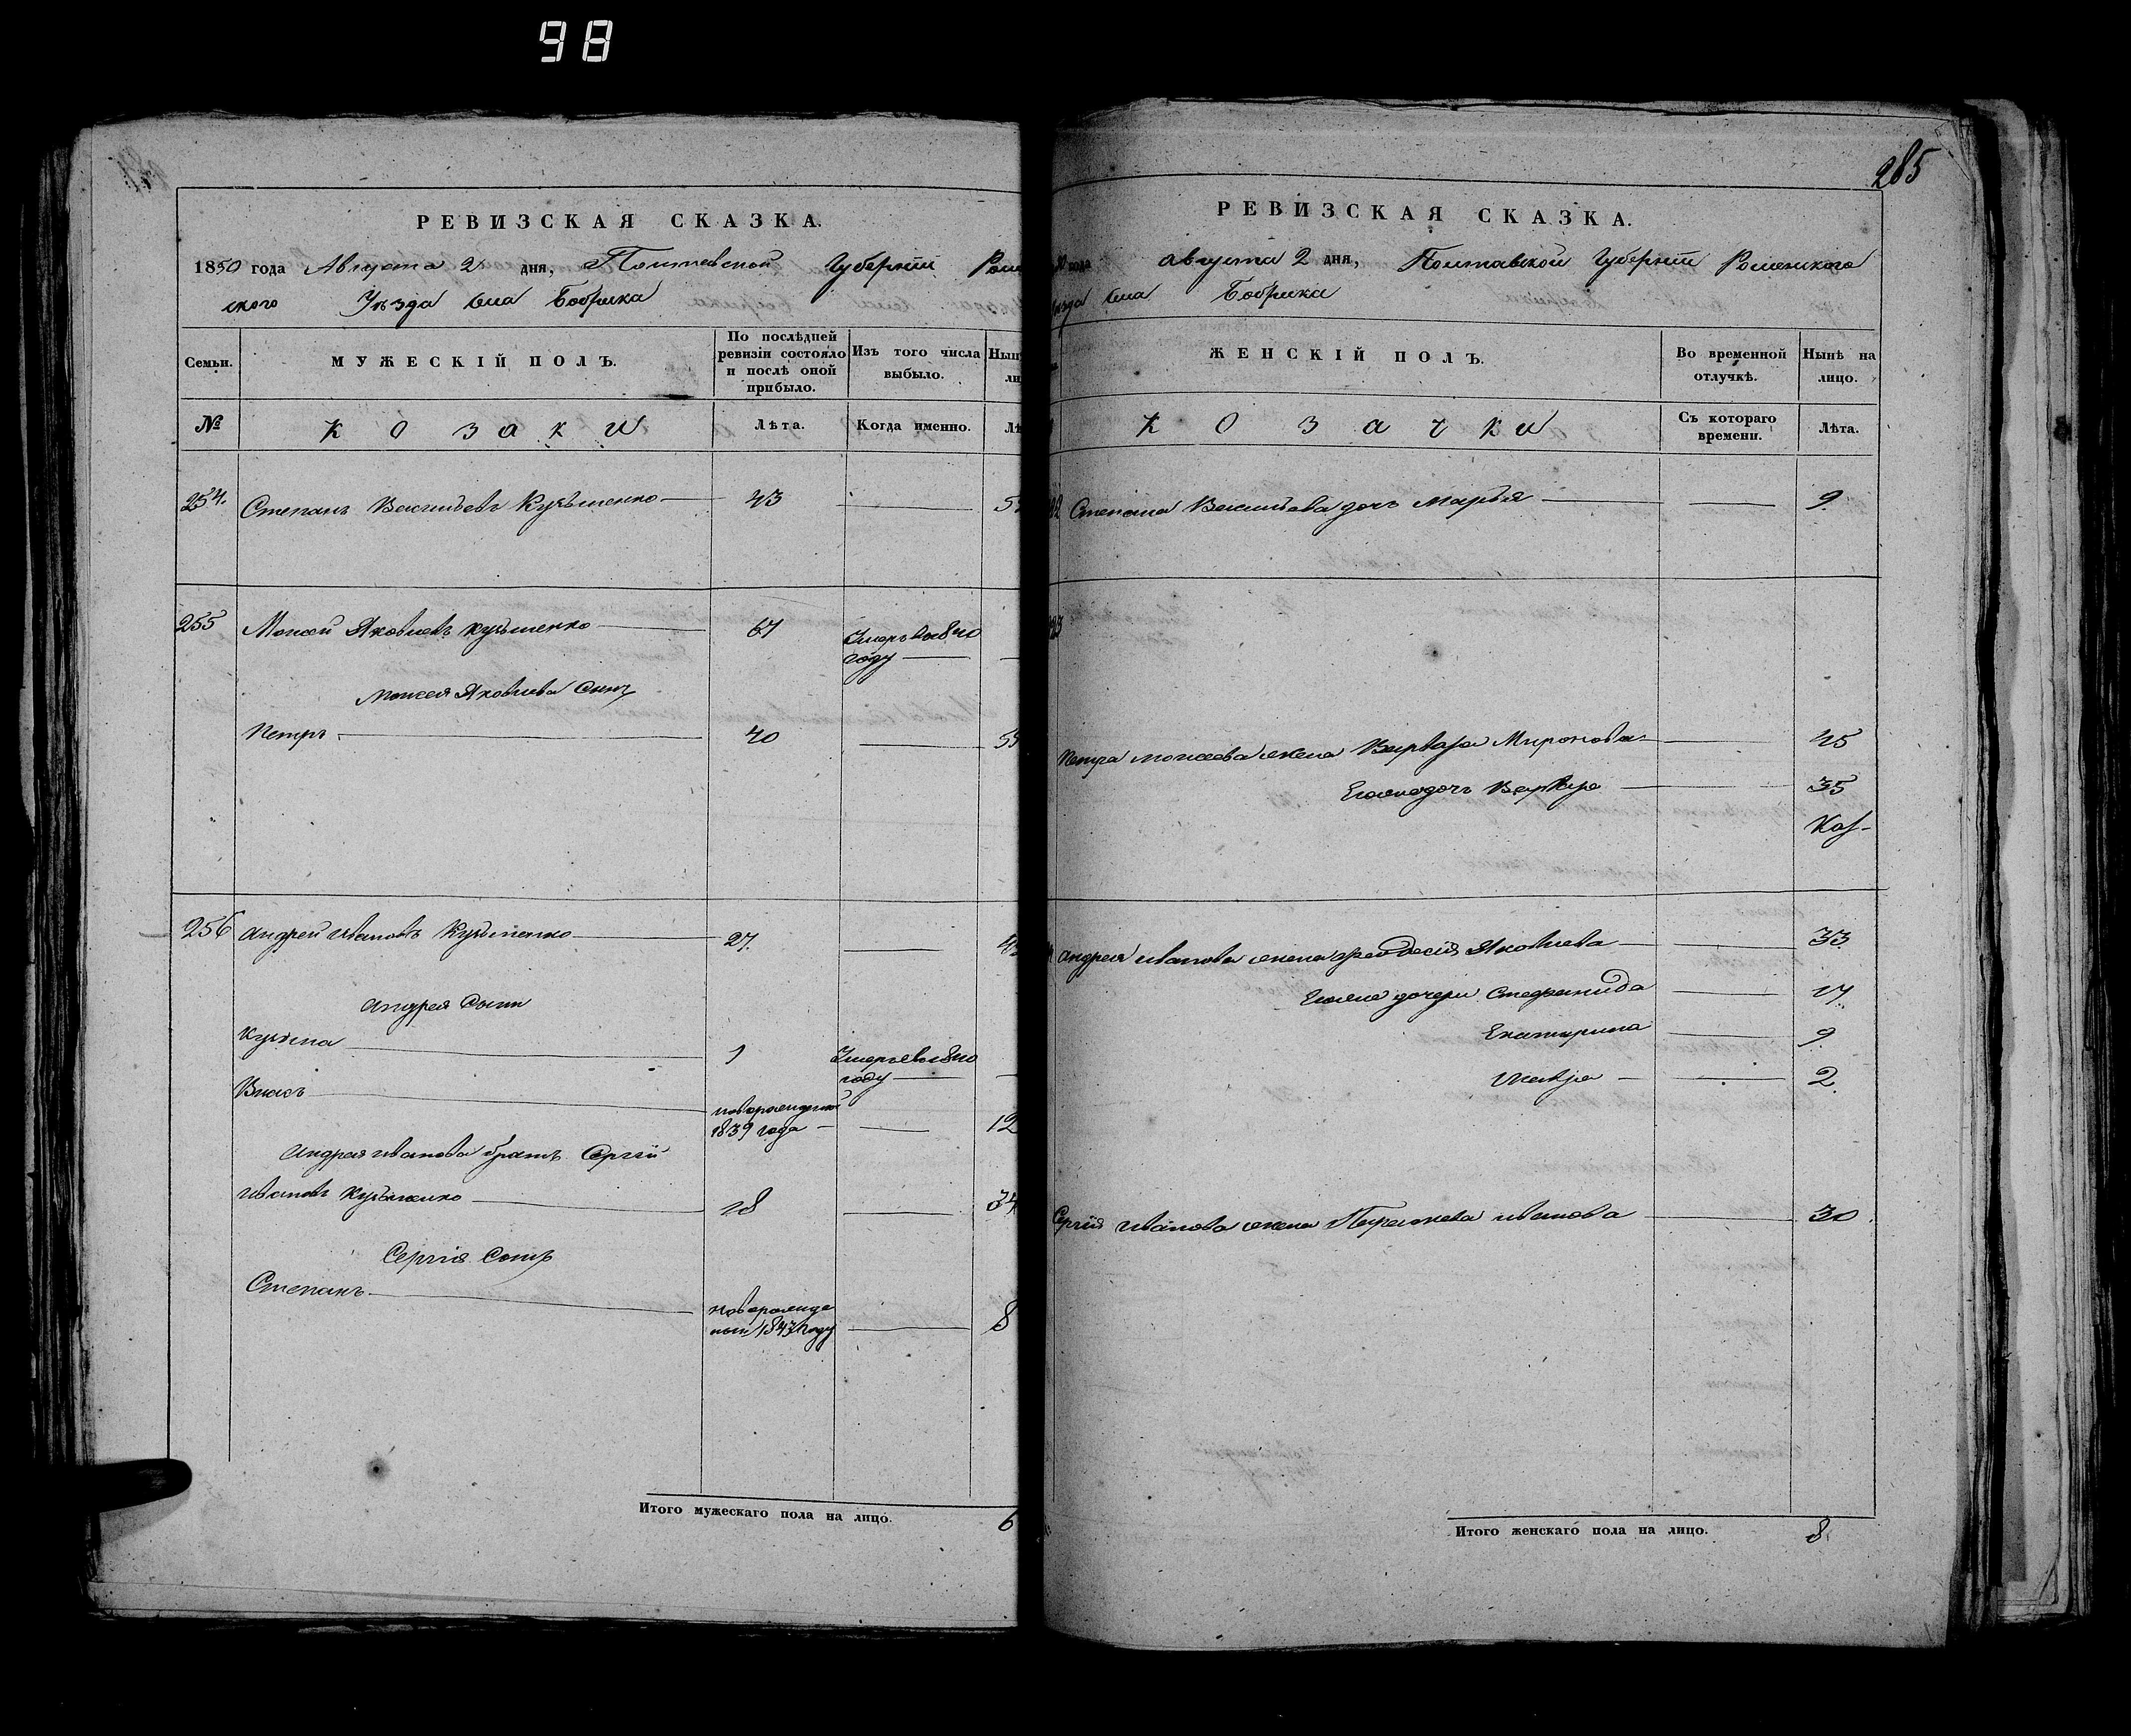 98
РЕВИЗСКАЯ СКАЗКА.
1850 года Августа 2 дня, Полтавской Губерніи Ром
ского Уѣзда Села Бобрика
Семьи.
МУЖЕСКІЙ ПОЛЪ.
По послѣдней ревизіи состояло и послѣ оной прибыло.
Изъ того числа выбыло.
№
Козаки
Лѣта.
Когда именно.
254. Степанъ Васильевъ Кузьменко 43
255 Мойсей Яковлевъ Кузьменко 67 Умеръ въ 1840
году
Мойсея Яковлева Сынъ
Петръ 40
256 Андрей Ивановъ Кузьменко 27.
Андрея Сыны
Кузьма 1 Умеръ въ 1840
году
Власъ новорожденной
1839 года 12
Андрея Иванова братъ Сергій
Ивановъ Кузьменко 18 34
Сергія Сынъ
Степанъ новорожде
ный 1843 году 8
Итого мужескаго пола на лицо. 6
285
РЕВИЗСКАЯ СКАЗКА.
года Августа 2 дня, Полтавской Губерніи Роменского
уѣзда Села Бобрика
ЖЕНСКІЙ ПОЛЪ.
Во временной отлучкѣ.
Нынѣ на лицо.
Козачки
Съ котораго времени.
Лѣта.
Степана Васильева дочь Марья 9
Петра Мойсеева жена Варвара Миронова 45
Егоже дочь Варвара 35
Андрея Иванова жена Феодосія Яковлева 33
Егоже дочери Стефанида 17
Екатерина 9
2
Сергія Иванова жена Параскева Иванова 30
Итого женскаго пола на лицо. 8.